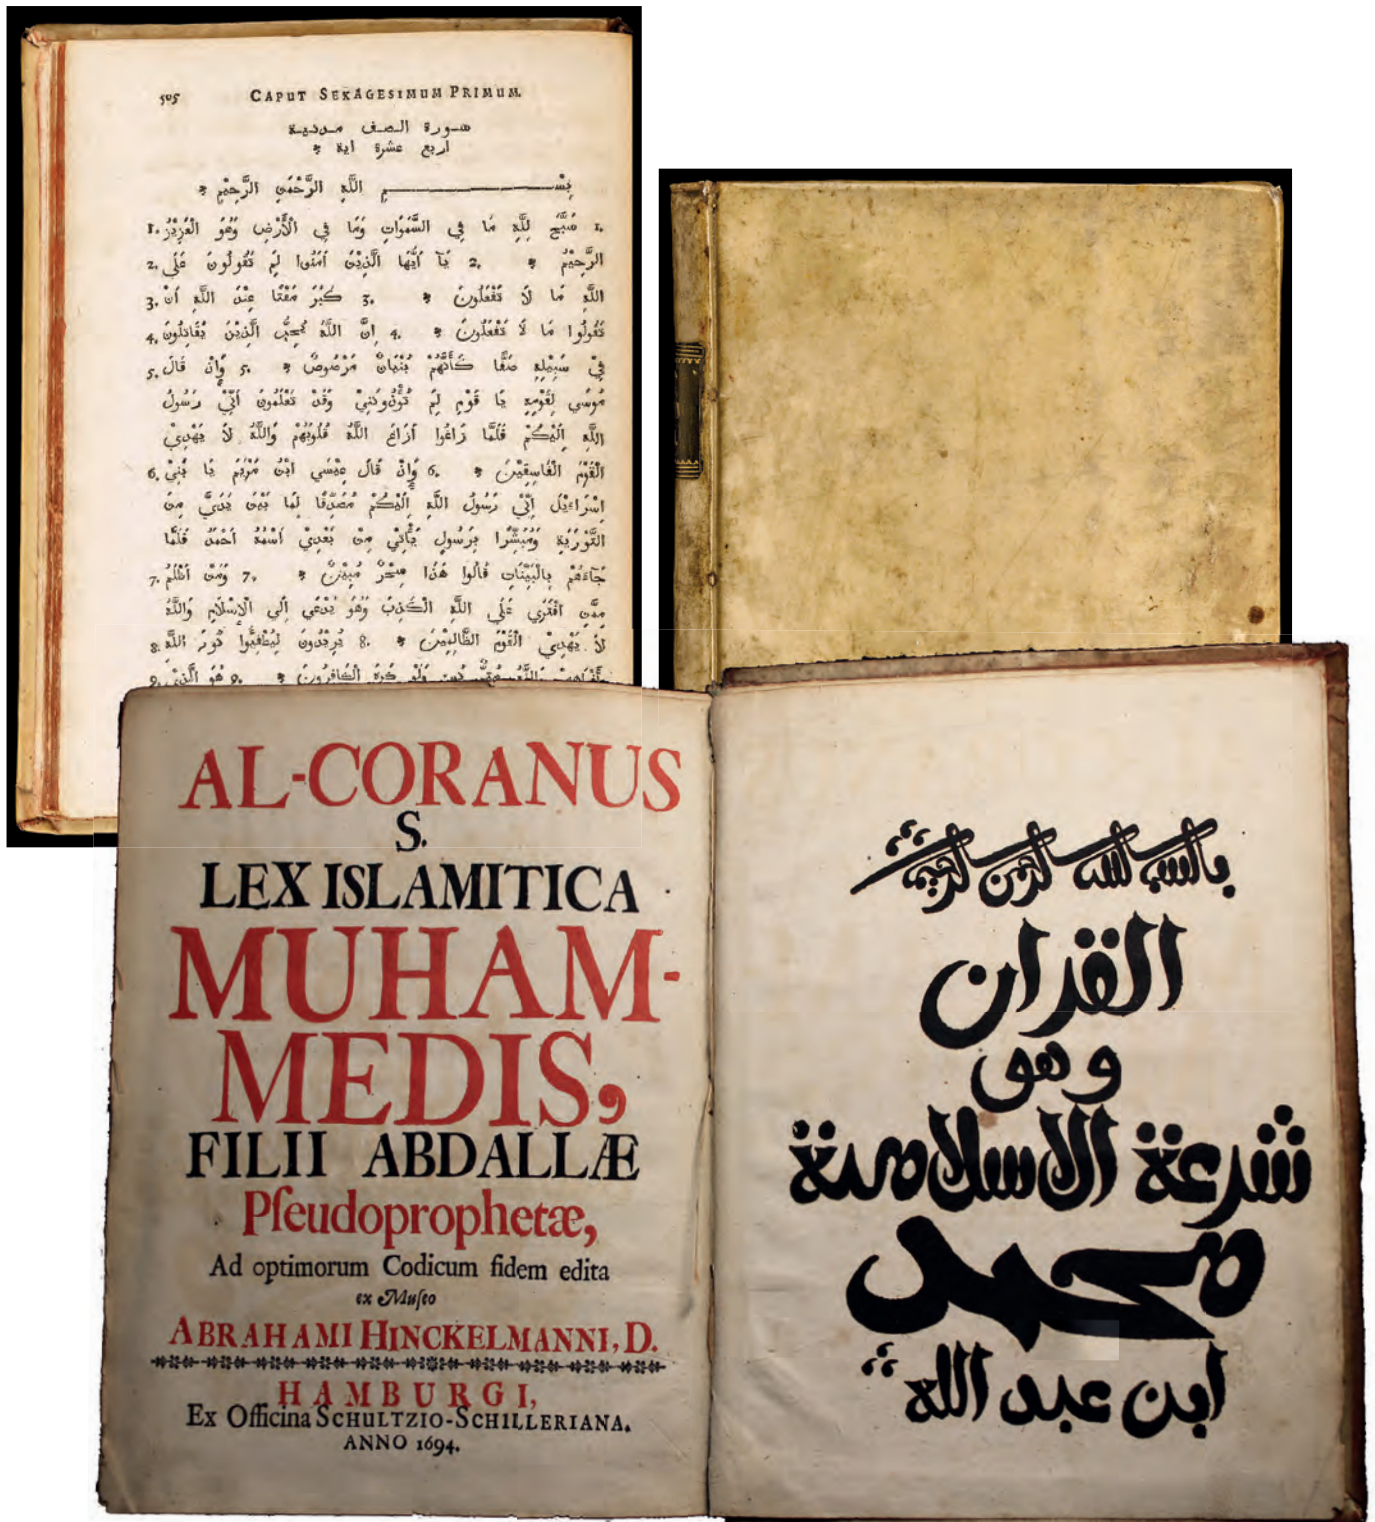 505 CAPUT SEXAGESIMUM PRIMUM.
سورة الصف مدنية
اربع عشرة اية *
بِسْـــــــــمِ اللَّهِ الرَّحْمَنِ الرَّحِيْمِ *
1. سَبَّحَ لِلَّهِ مَا فِي السَّمَوَاتِ وَمَا فِي الْأَرْضِ وَهُوَ الْعَزِيْزُ 1.
الرَّحِيْمُ * 2. يَآ اَيُّهَا الَّذِيْنَ اَمَنُوا لِمَ تَقُولُونَ عَلَى 2.
اللَّهِ مَا لَا تَفْعَلُونَ * 3. كَبُرَ مَقْتًا عِنْدَ اللَّهِ اَنْ 3.
تَقُولُوا مَا لَا تَفْعَلُونَ * 4. اِنَّ اللَّهَ يُحِبُّ الَّذِيْنَ يُقَاتِلُونَ 4.
فِيْ سَبِيْلِهِ صَفًّا كَأَنَّهُمْ بُنْيَانٌ مَرْصُوصٌ * 5. وَإِذْ قَالَ 5.
مُوسَي لِقَوْمِهِ يَا قَوْمِ لِمَ تُؤْذُونَنِيْ وَقَدْ تَعْلَمُونَ اَنِّيْ رَسُولُ
اللَّهِ اِلَيْكُمْ فَلَمَّا زَاغُوا اَزَاغَ اللَّهُ قُلُوبَهُمْ وَاللَّهُ لَا يَهْدِيْ
الْقَوْمَ الْفَاسِقِيْنَ * 6. وَإِذْ قَالَ عِيْسَي ابْنُ مَرْيَمَ يَا بَنِيْ 6.
اِسْرَاءِيْلَ اِنِّيْ رَسُولُ اللَّهِ اِلَيْكُمْ مُصَدِّقًا لِمَا بَيْنَ يَدَيَّ مِنَ
التَّوْرَيةِ وَمُبَشِّرًا بِرَسُولٍ يَأْتِيْ مِنْ بَعْدِيْ اَسْمُهُ اَحْمَدُ فَلَمَّا
جَآءَهُمْ بِالْبَيِّنَاتِ قَالُوا هَذَا سِحْرٌ مُبِيْنٌ * 7. وَمَنْ اَظْلَمُ 7.
مِمَّنِ افْتَرَي عَلَي اللَّهِ الْكَذِبَ وَهُوَ يُدْعَي اِلَي الْإِسْلَامِ وَاللَّهُ
لَا يَهْدِيْ الْقَوْمَ الظَّالِمِيْنَ * 8. يُرِيْدُونَ لِيُطْفِئُوا نُورَ اللَّهِ 8.
وَلَوْ كَرِهَ الْكَافِرُونَ * 9. هُوَ الَّذِيْ 9.
AL-CORANUS
S.
LEX ISLAMITICA
MUHAM-
MEDIS,
FILII ABDALLÆ
Pſeudoprophetæ,
Ad optimorum Codicum fidem edita
ex Muſeo
ABRAHAMI HINCKELMANNI, D.
HAMBURGI,
Ex Officina SCHULTZIO-SCHILLERIANA.
ANNO 1694.
القران
وهو
شرعة الاسلامية
محمد
ابن عبد الله